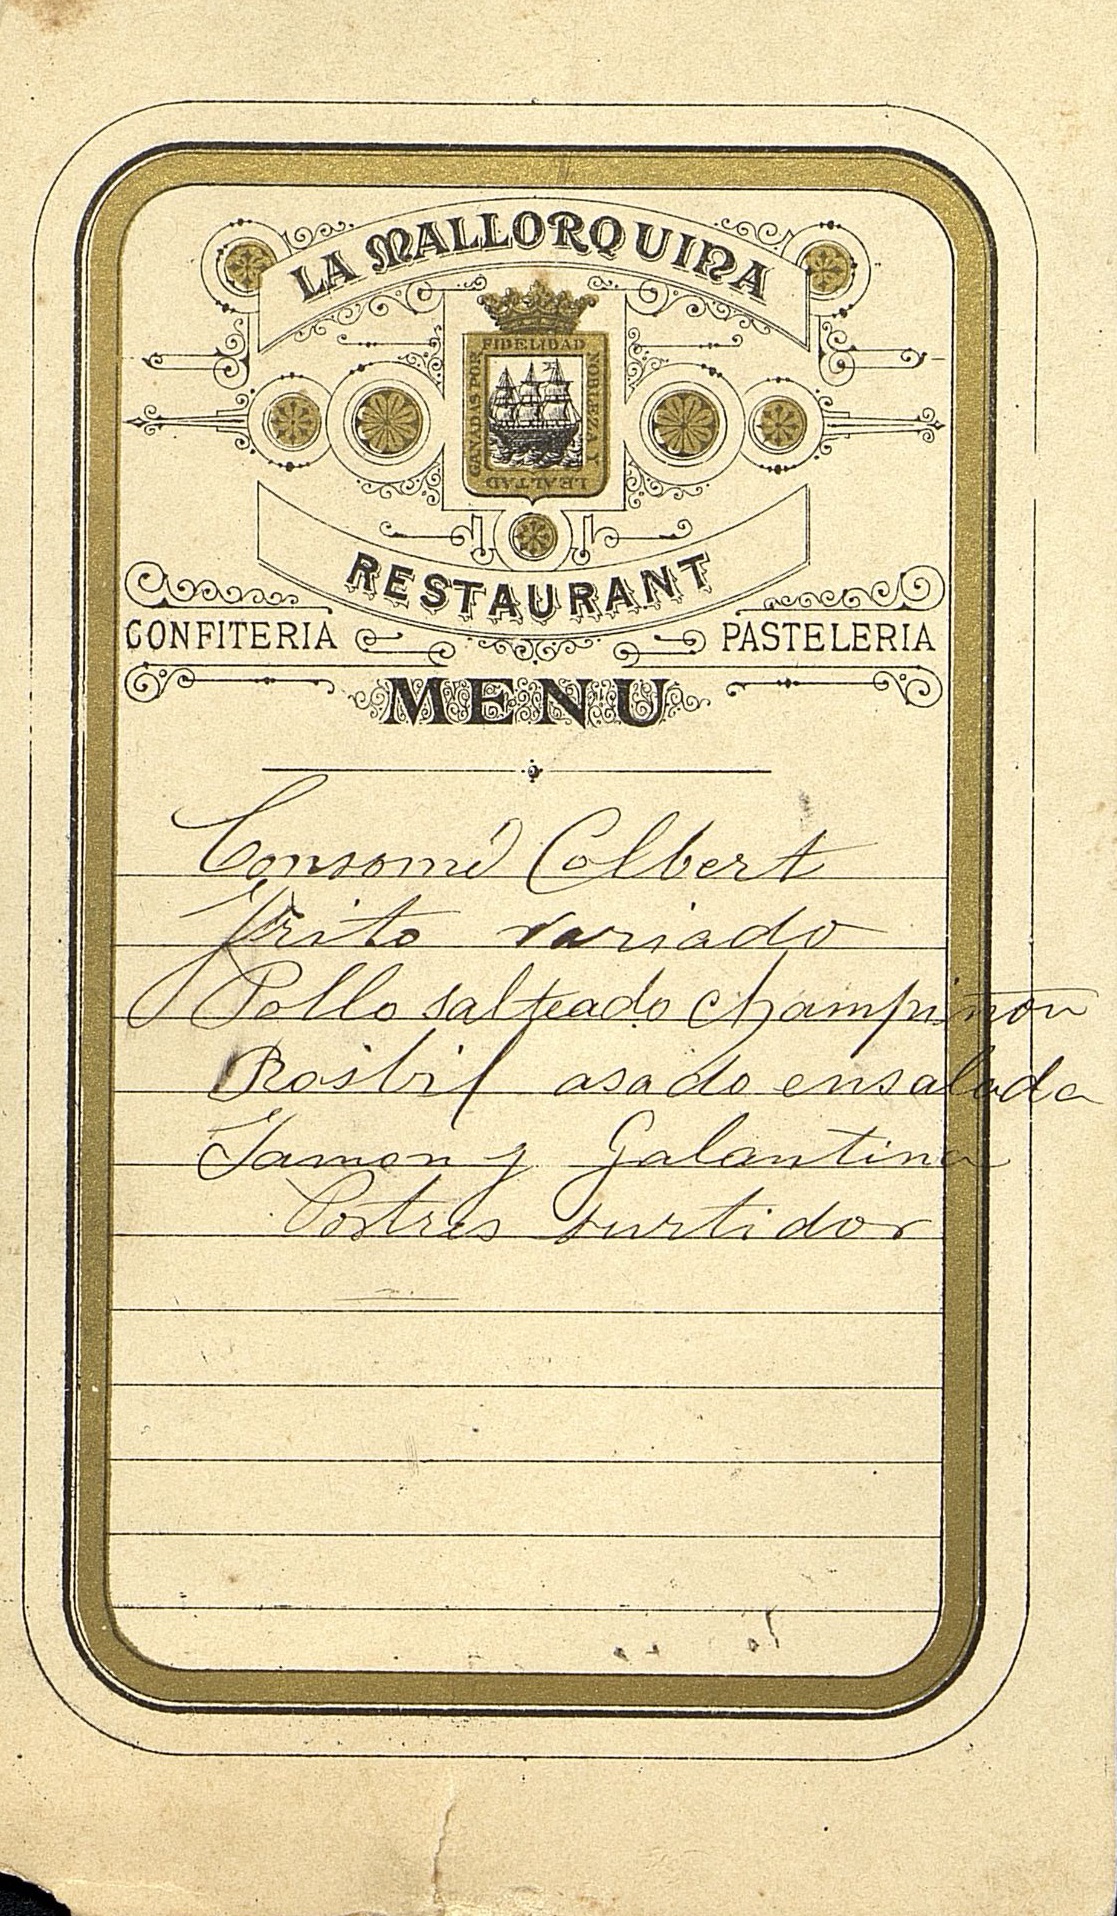 LA MALLORQUINA
FIDELIDAD
GANADAS POR
NOBLEZA Y
LEALTAD
RESTAURANT
CONFITERIA PASTELERIA
MENU
Consomé Colbert
Frito variado
Pollo salteado champiñon
Rosbif asado ensalada
Jamon y Galantina
Postres surtidos